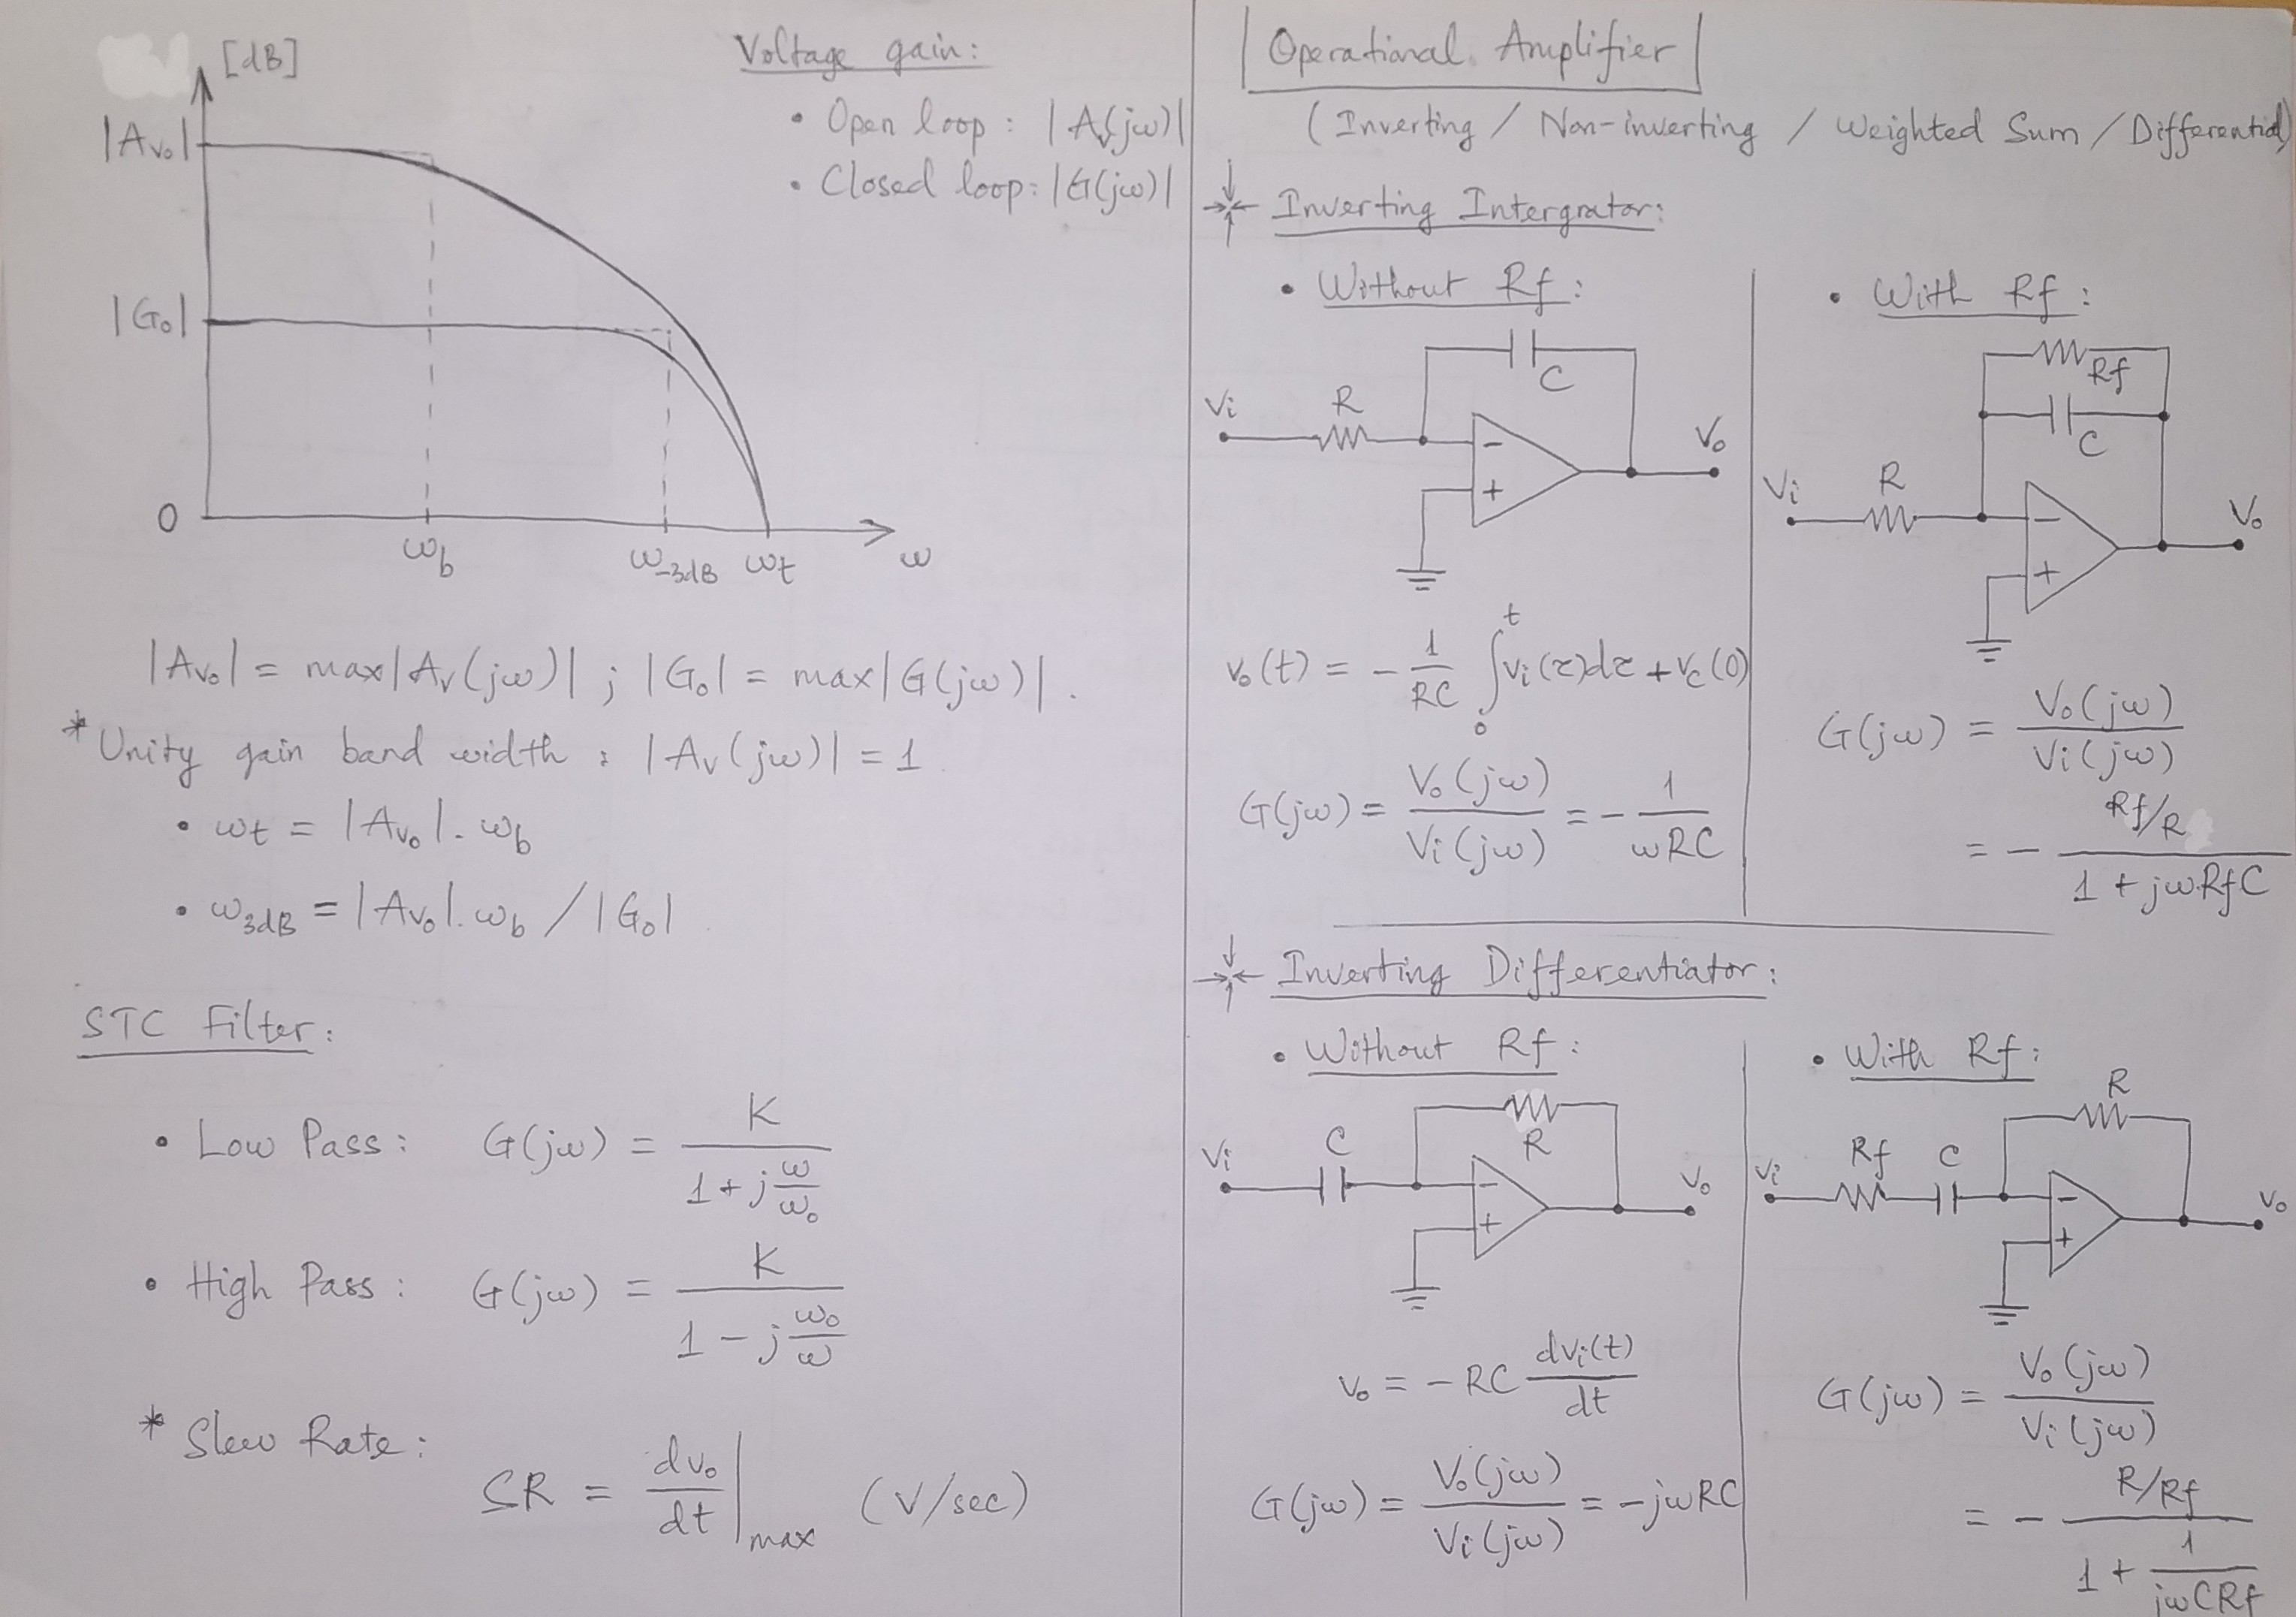 [dB]
|Av₀|
|G₀|
0
ω_b
ω_-3dB
ωt
ω
Voltage gain:
• Open loop: |Av(jω)|
• Closed loop: |G(jω)|
|Av₀| = max|Av(jω)| ; |G₀| = max|G(jω)|.
* Unity gain band width : |Av(jω)| = 1
• ωt = |Av₀|.ω_b
• ω_3dB = |Av₀|.ω_b / |G₀|
STC Filter:
• Low Pass: G(jω) = K / (1 + j ω/ω₀)
• High Pass: G(jω) = K / (1 - j ω₀/ω)
* Slew Rate:
SR = dv₀/dt |max (V/sec)
Operational Amplifier
(Inverting / Non-inverting / Weighted Sum / Differential)
Inverting Intergrator:
• Without Rf:
C
Vi
R
Vo
-
+
v₀(t) = - 1/RC ∫₀ᵗ vi(τ)dτ + vc(0)
G(jω) = Vo(jω)/Vi(jω) = - 1/ωRC
• With Rf:
Rf
C
Vi
R
Vo
-
+
G(jω) = Vo(jω)/Vi(jω)
= - (Rf/R) / (1 + jωRfC)
Inverting Differentiator:
• Without Rf:
R
Vi
C
Vo
-
+
v₀ = -RC dvi(t)/dt
G(jω) = Vo(jω)/Vi(jω) = -jωRC
• With Rf:
R
Vi
Rf
C
Vo
-
+
G(jω) = Vo(jω)/Vi(jω)
= - (R/Rf) / (1 + 1/jωCRf)